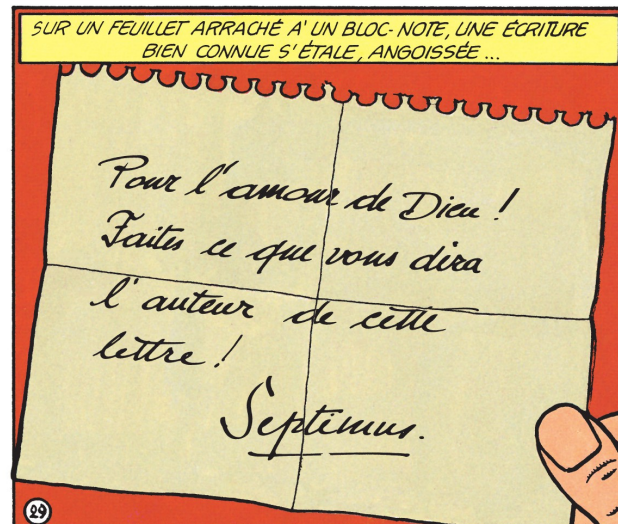 SUR UN FEUILLET ARRACHÉ A' UN BLOC-NOTE, UNE ÉCRITURE
BIEN CONNUE S'ÉTALE, ANGOISSÉE...
Pour l'amour de Dieu !
Faites ce que vous dira
l'auteur de cette
lettre !
Septimus.
29